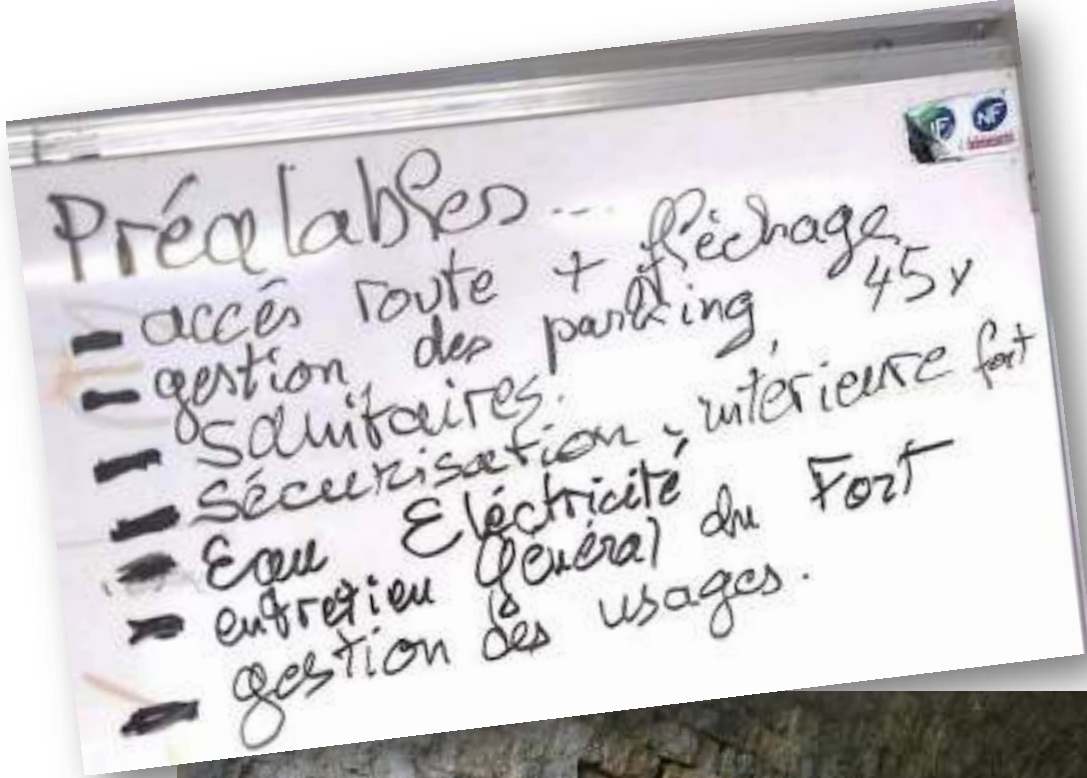 Préalables...
accès route + fléchage
gestion des parking 45v
sanitaires.
sécurisation intérieure fort
Eau Eléctricité
entretien général du Fort
gestion des usages.
NF